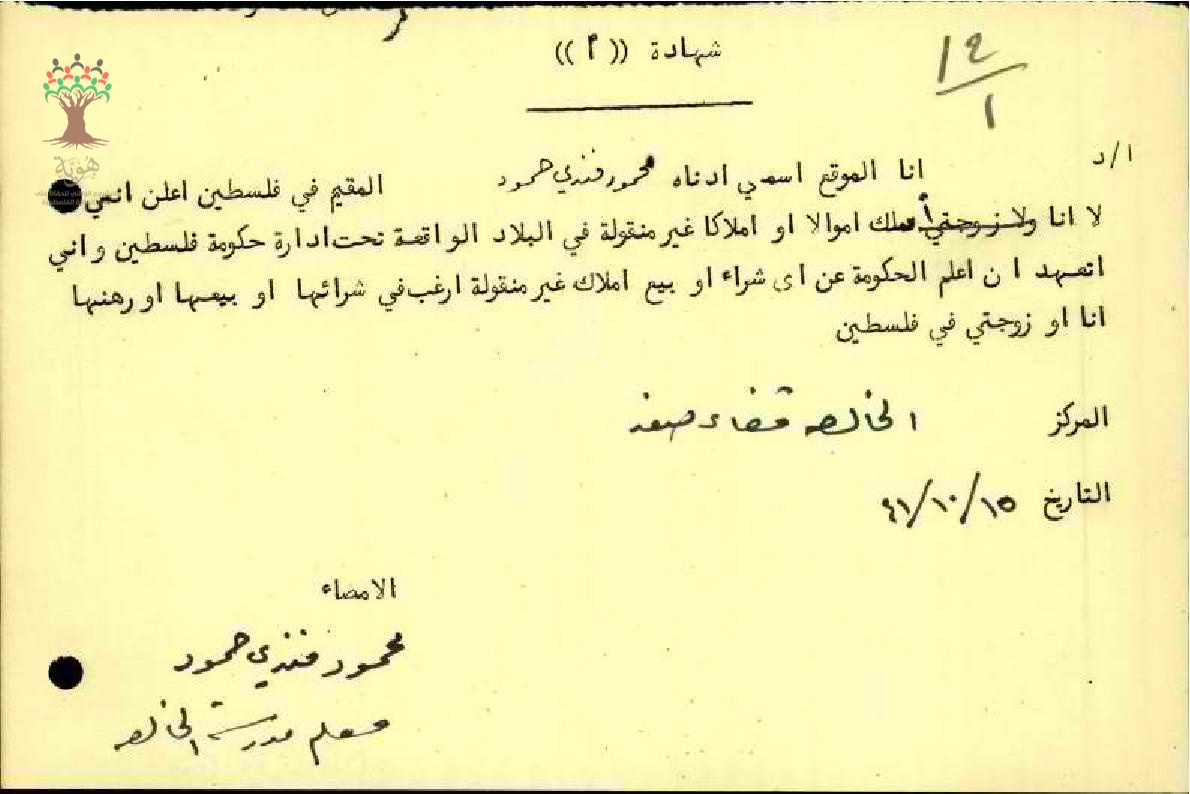 شهادة ((٢))
١٢/١
ا/د
انا الموقع اسمي ادناه محمود فندي حمود المقيم في فلسطين اعلن انني
لا انا ولا زوجتي أملك اموالا او املاكا غير منقولة في البلاد الواقعة تحت ادارة حكومة فلسطين واني
اتعهد ان اعلم الحكومة عن اى شراء او بيع املاك غير منقولة ارغب في شرائها او بيعها او رهنها
انا او زوجتي في فلسطين
المركز الخالصه قضاء صفد
التاريخ ٤١/١٠/١٥
الامضاء
محمود فندي حمود
معلم مدرسة الخالصه
هُويَّة